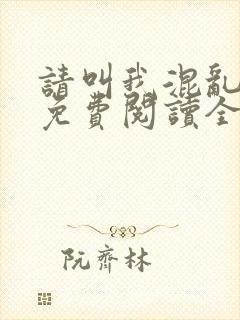 請叫我混亂
免費閱讀全
阮齊林